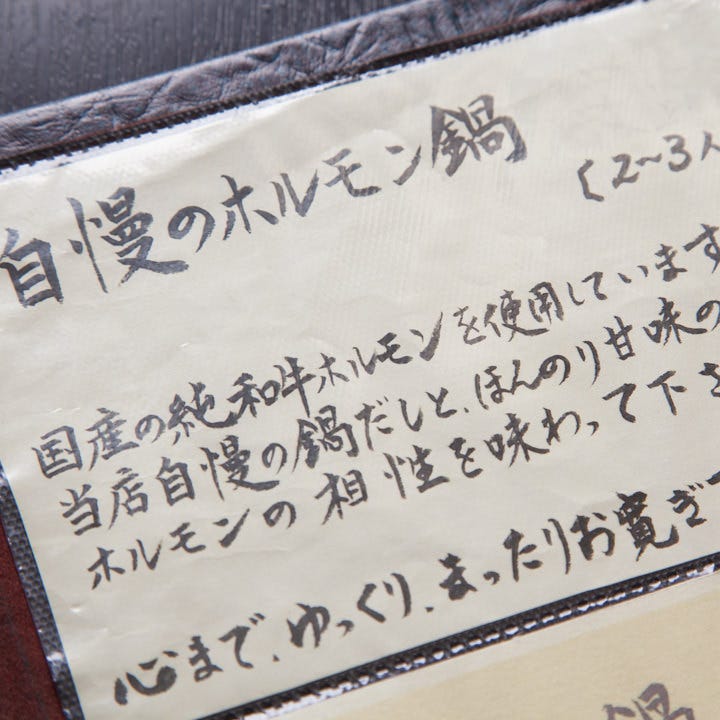 自慢のホルモン鍋
(2〜3人
国産の純和牛ホルモンを使用しています
当店自慢の鍋だしと、ほんのり甘味の
ホルモンの相性を味わって下さ
心まで、ゆっくり、まったりお寛ぎ
鍋